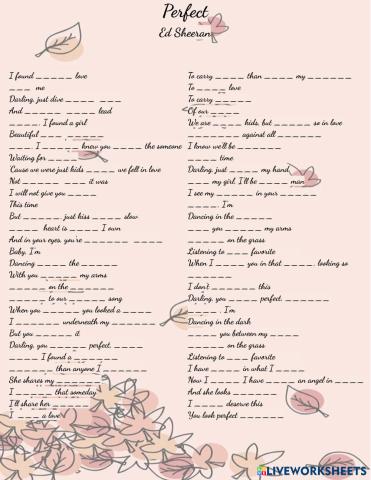 Perfect
Ed Sheeran
I found _____ love
___ me
Darling, just dive ____ ____
And _____ _____ lead
_____, I found a girl
Beautiful ___ _____
____, I _____ knew you ____ the someone
Waiting for _____
'Cause we were just kids _____ we fell in love
Not _______ it was
I will not give you _____
This time
But _____, just kiss ___ slow
_____ heart is ____ I own
And in your eyes, you're _______ ____
Baby, I'm
Dancing ____ the ____
With you _____ my arms
_______ on the _______
_______ to our _______ song
When you ______ you looked a _____
I ________ underneath my ________
But you _____ it
Darling, you _____ perfect, _____
_____ I found a _____
_______, than anyone I _______
She shares my _______
I _______ that someday
I'll share her _____
I _____ a love
To carry _____ than _____ my _______
To ____ love
To carry ______
Of our ____
We are _____ kids, but ______ so in love
________ against all _______
I know we'll be ______
_____ time
Darling, just ____ my hand
____ my girl, I'll be _____ man
I see my _____ in your ______
_____, I'm
Dancing in the _____
____ you _______ my arms
______ on the grass
Listening to ____ favorite
When I ____ you in that _____, looking so
________
I don't ________ this
Darling, you ______ perfect, _______
_____, I'm
Dancing in the dark
_____ you between my ____
______ on the grass
Listening to ____ favorite
I have _____ in what I _____
Now I _____ I have _____ an angel in _____
And she looks ______
I _____ deserve this
You look perfect ______
LIVEWORKSHEETS